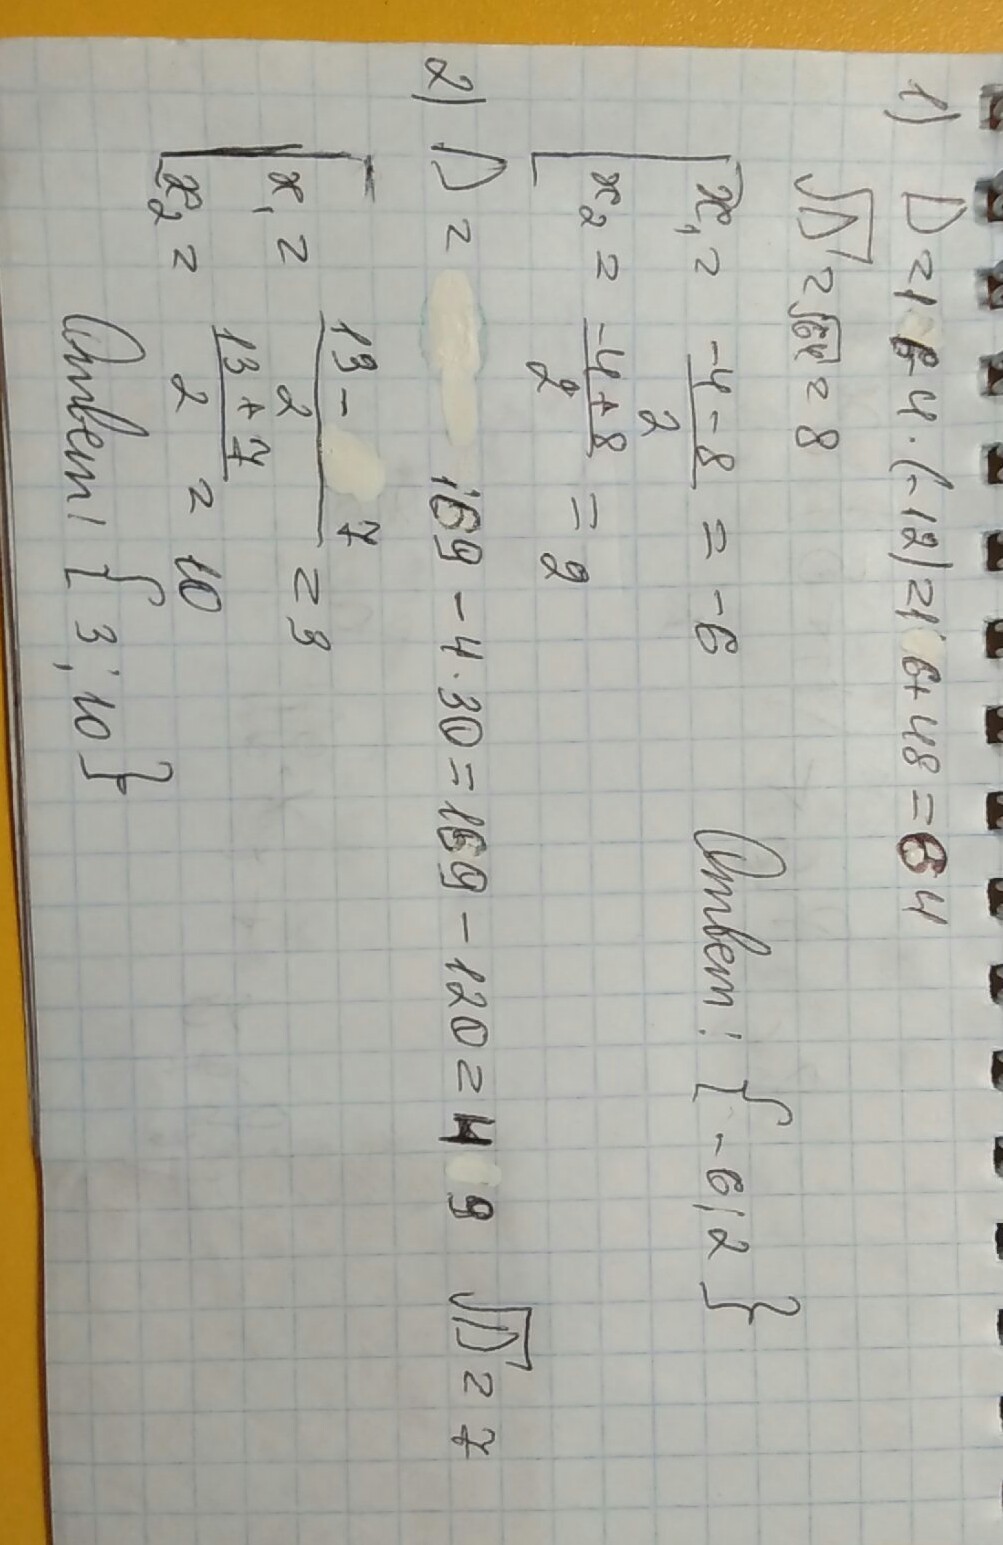 1) D = 16-4·(-12)=16+48=64
√D = √64 = 8
x₁ = (-4-8)/2 = -6 Ответ: {-6;2}
x₂ = (-4+8)/2 = 2
2) D = 169-4·30=169-120=49 √D = 7
x₁ = (13-7)/2 = 3
x₂ = (13+7)/2 = 10
Ответ: {3;10}